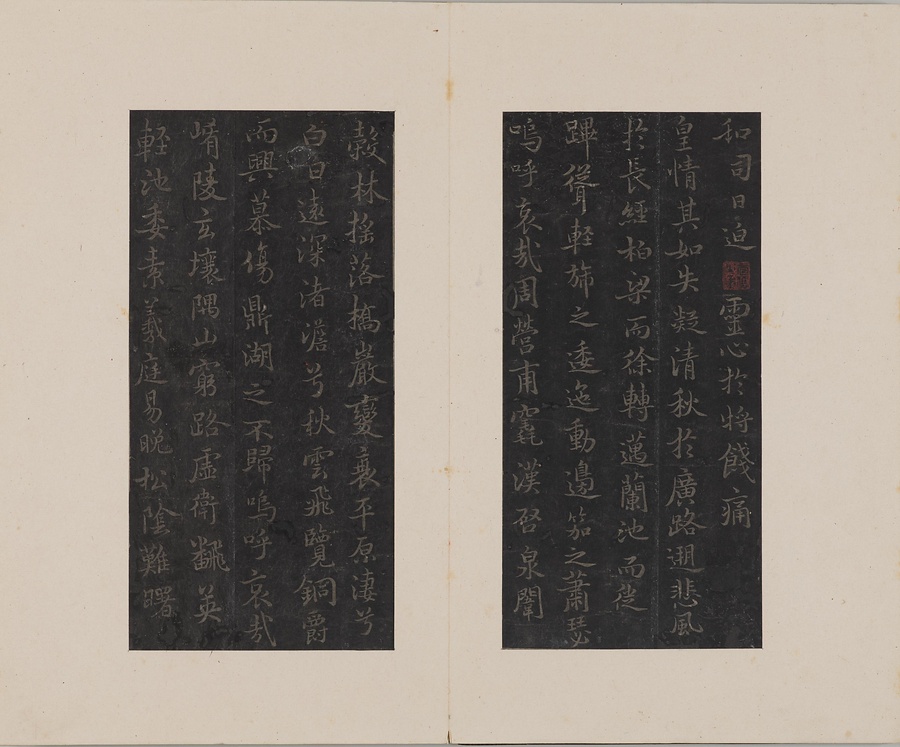 和司日迫靈心於將餞痛
皇情其如失凝清秋於廣路遡悲風
於長經柏梁而徐轉邁蘭池而從
蹕聳軽旆之逶迤動邊笳之蕭瑟
嗚呼哀哉周營甫竁漢啓泉闈
穀林搖落橋巖變衰平原淒兮
白日遠深渚澹兮秋雲飛覽銅爵
而興慕傷鼎湖之不歸嗚呼哀哉
崤陵玄壤隅山窮路虛衛飜英
軽池委素羲庭易晚松陰難曙